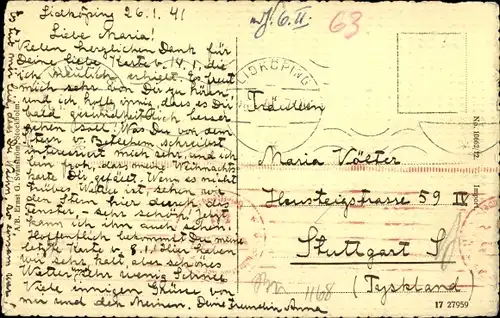 Lidköping 26.1.41
Liebe Maria!
Vielen herzlichen Dank für
Deine liebe Karte v. 14.1, die
ich neulich erhielt. Es freut
mich sehr von Dir zu hören,
und ich hoffe innig, dass es Dir
bald gesundheitlich besser
gehen soll. Was Du von dem
Stern v. Betlehem schreibst
interessiert mich sehr, und ich
bin froh, dass meine Weihnachts-
karte Dir gefällt. Wenn es nicht
trübes Wetter ist, sehen wir
den Stern hier durch
Fenster, sehr schön. Jetzt
kann ich ihn auch sehen.
Hoffentlich bekommst Du meine
letzte Karte v. 8.1. Hier haben
wir sehr kalt, aber schönes
Wetter. Sehr wenig Schnee.
Viele innigen Grüsse von
mir und den Meinen. Deine Freundin Anna
A/B. Ernst G. Svanström, Stockholm.
6.II.
63
LIDKÖPING
Fräulein
Maria Völter
Hensteigstrasse 59 IV
Stuttgart S
(Tyskland)
1168
No. 1060272
Import
17 27959